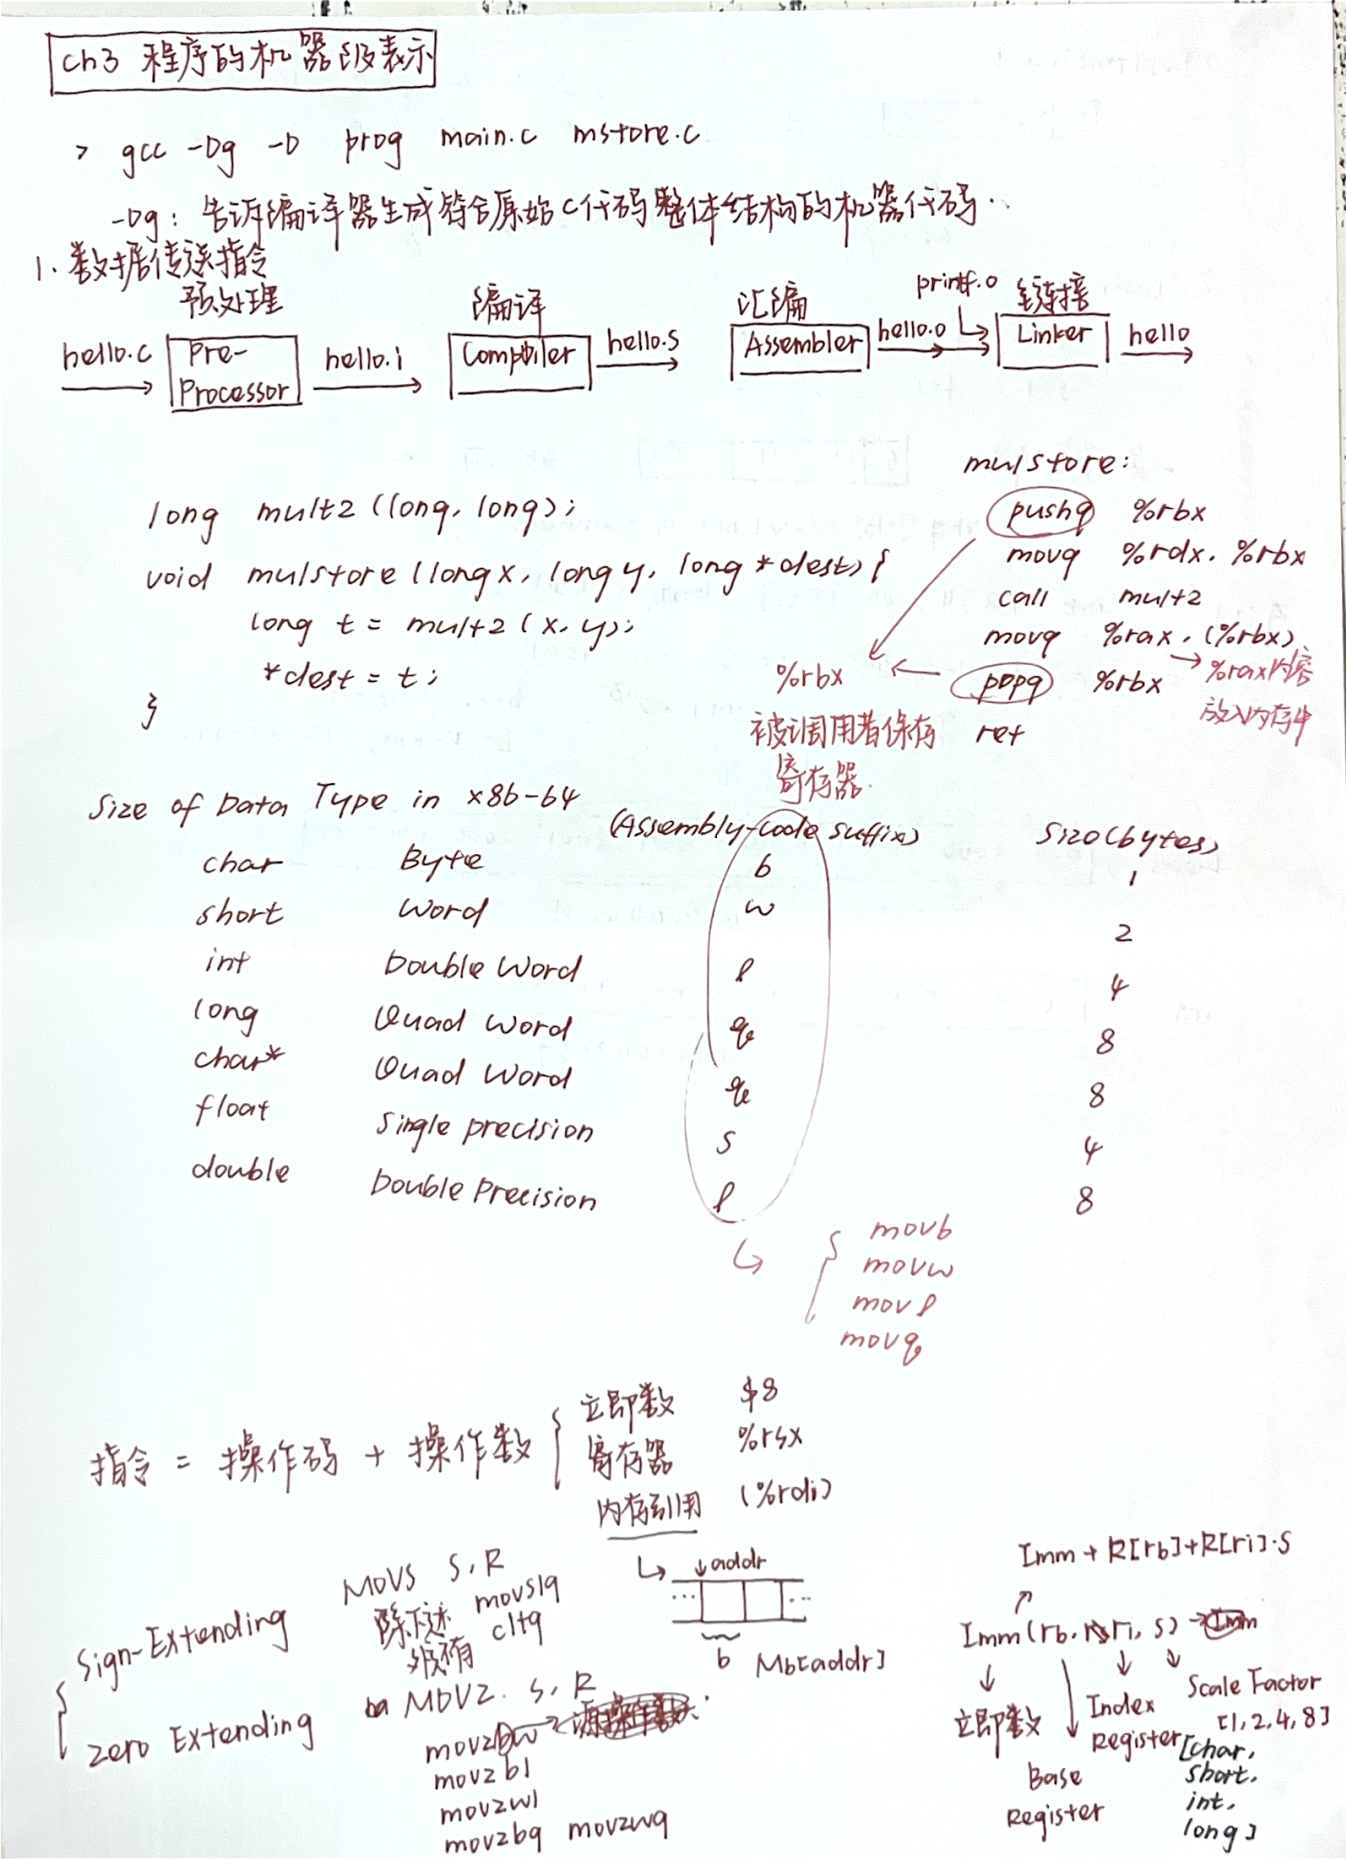 ch3 程序的机器级表示
> gcc -Og -O prog main.c mstore.c
-Og: 告诉编译器生成符合原始C代码整体结构的机器代码.
1. 数据传送指令
预处理 编译 汇编 printf.o 链接
hello.c Pre-Processor hello.i Compiler hello.s Assembler hello.o Linker hello
long mult2 (long, long);
void mulstore (long x, long y, long * dest) {
long t = mult2 (x, y);
*dest = t;
}
mulstore:
pushq %rbx
movq %rdx, %rbx
call mult2
movq %rax, (%rbx)
→ %rax内容
放入内存中
popq %rbx
ret
%rbx
被调用者保存
寄存器.
Size of Data Type in x86-64 (Assembly-code suffix) Size(bytes)
char Byte b 1
short Word w 2
int Double Word l 4
long Quad Word q 8
char* Quad Word q 8
float Single precision s 4
double Double Precision l 8
movb
movw
movl
movq
指令 = 操作码 + 操作数
立即数 $8
寄存器 %rsx
内存引用 (%rdi)
addr
... ...
b Mb[addr]
Sign-Extending
MOVS S, R
除下述 movslq
cltq
Zero Extending
MOVZ. S, R
movzbw
movzbl
movzwl
movzbq movzwq
Imm + R[rb]+R[ri]·S
Imm(rb, ri, s) → Imm
立即数
Base Register
Index Register
Scale Factor
[1, 2, 4, 8]
[char,
short,
int,
long]